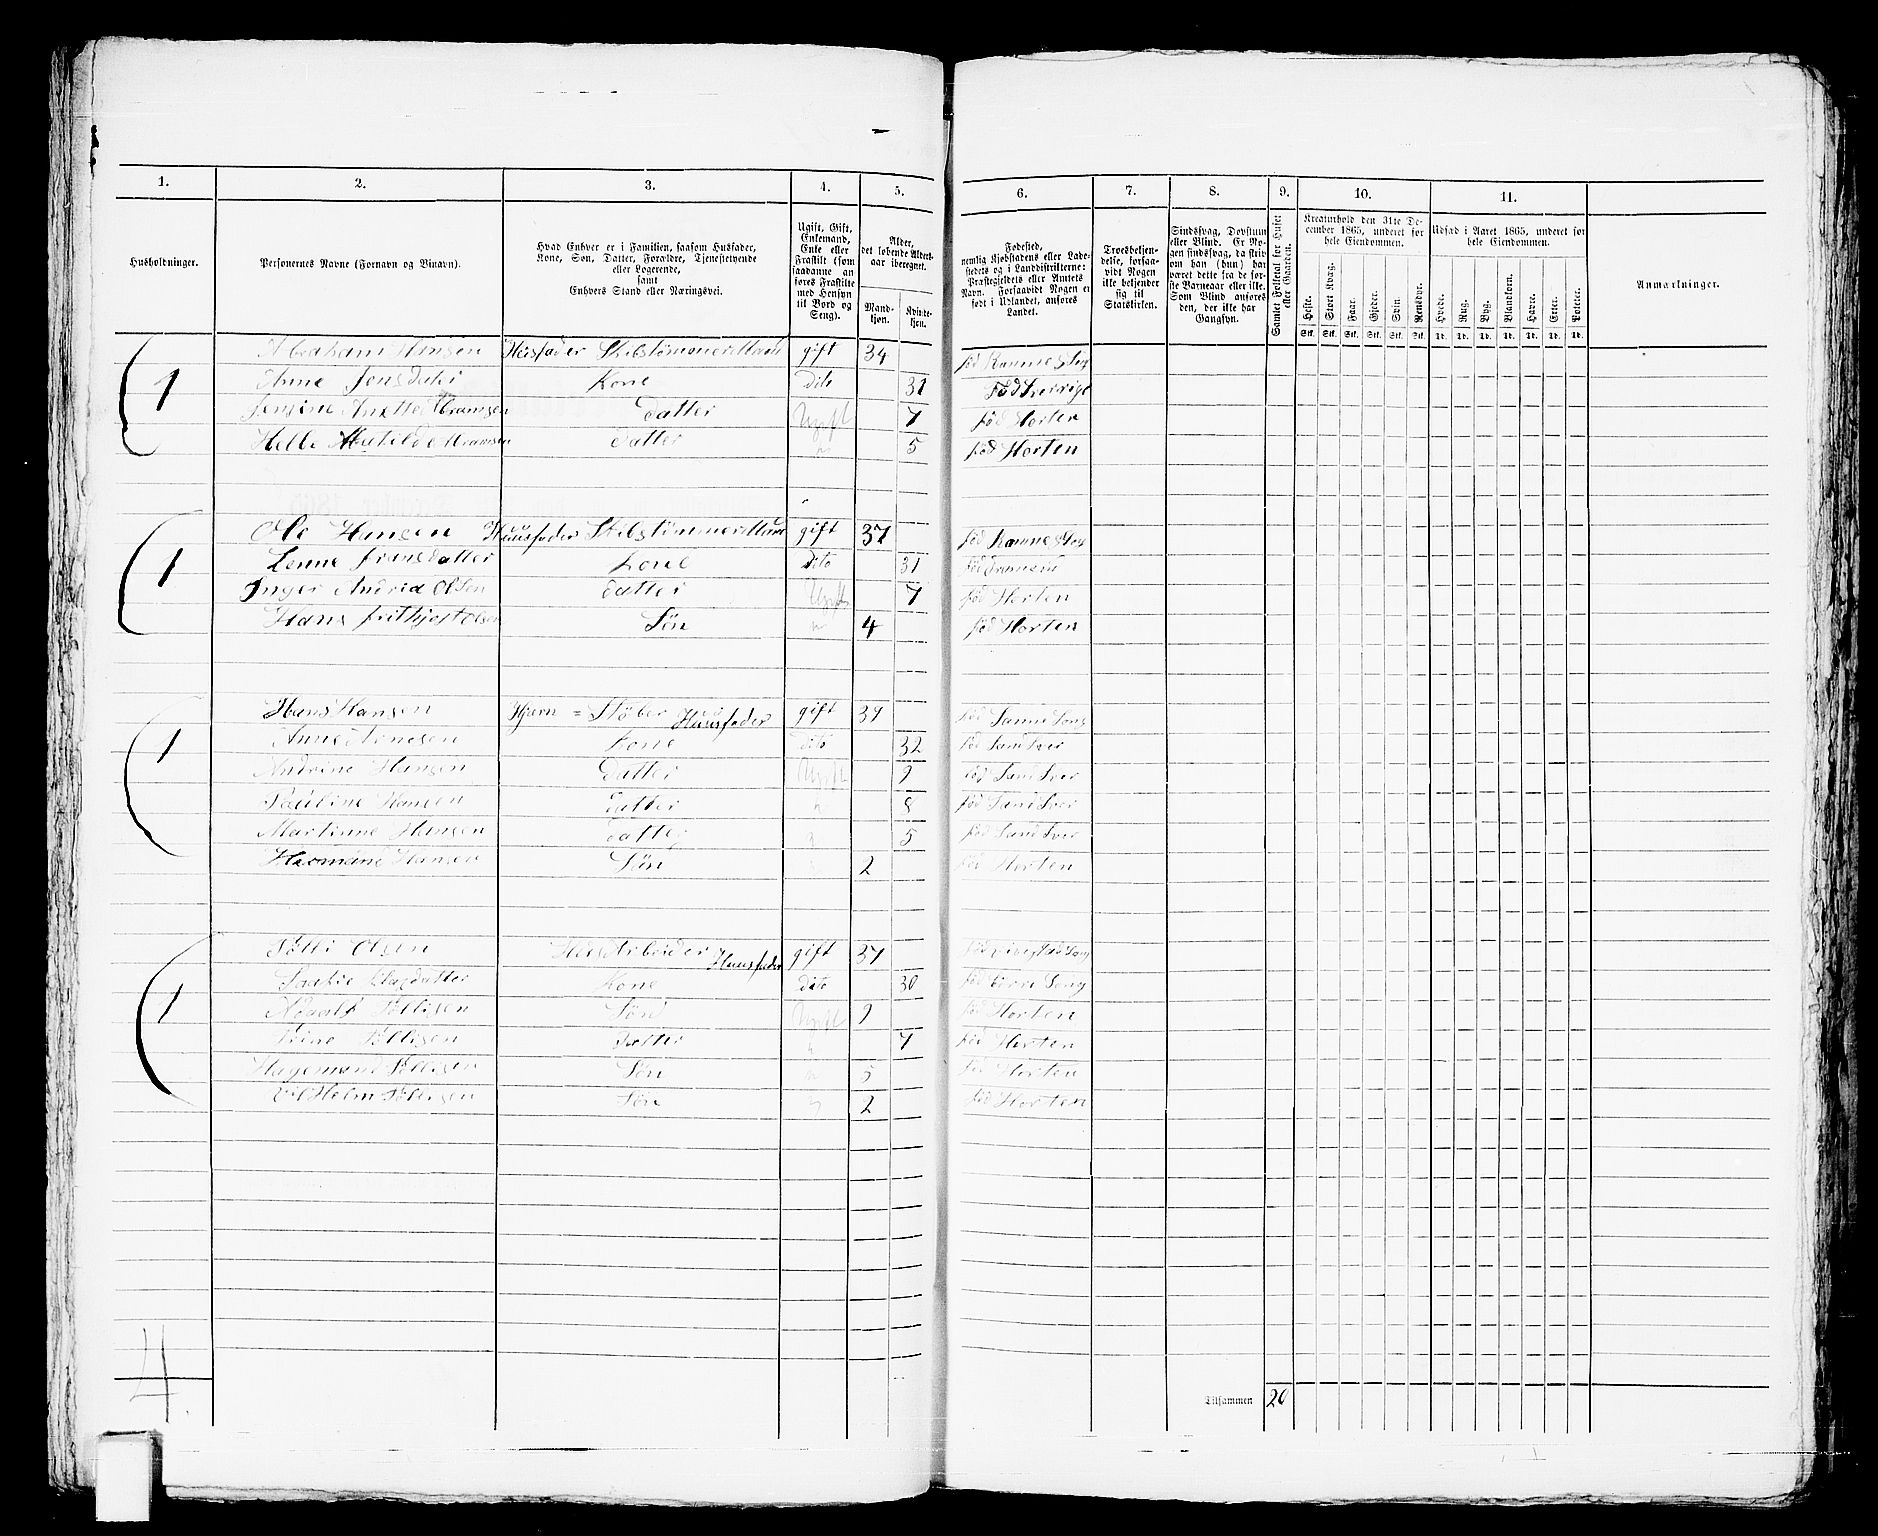 1. 2. 3. 4. 5. 6. 7. 8. 9. 10. 11.
Husholdninger.
Personernes Navne (Fornavn og Tilnavn).
Hvad Enhver er i Familien, saasom Husfader,
Kone, Søn, Datter, Forældre, Tjenestetyende
eller Logerende,
samt
Enhvers Stand eller Næringsvei.
Ugift, Gift,
Enkemand,
Enke eller
Fraskilt (som
saadanne an
føres Fraskilte
med Hensyn
til Bord og
Seng).
Alder,
det løbende Alders-
aar iberegnet.
Mand-
kjøn.
Kvinde-
kjøn.
Fødested,
nemlig Kjøbstadens eller Lade-
stedets og i Landdistrikterne:
Præstegjeldets eller Amtets
Navn. Forsaavidt Nogen er
født i Udlandet, anføres
Landet.
Troesbekjen-
delse, forsaa-
vidt Nogen
ikke bekjender
sig til
Statskirken.
Sindssvag, Døvstum
eller Blind. Er No-
gen sindssvag, da skriv
om han (hun) har
været dette fra de før-
ste Barneaar eller ikke.
Som Blind anføres
den, der ikke har
Gangsyn.
Samlet Folketal for Huset
eller Gaarden.
Kreaturhold den 31te De-
cember 1865, anført for
hele Eiendommen.
Heste. Stort Kvæg. Faar. Gjeder. Svin. Rensdyr.
Stk. Stk. Stk. Stk. Stk. Stk.
Udsæd i Aaret 1865, anført for
hele Eiendommen.
Hvede. Rug. Byg. Blandkorn. Havre. Erter. Poteter.
Td. Td. Td. Td. Td. Td. Td.
Anmærkninger.
Abraham Hansen Husfader Skibstømmermand gift 34 fød Ramnes
1 Anne Jensdater Kone Dito 31 Fød Sverrige
Jensine Anette Abramsen Datter Ugift 7 fød Horten
Helle Matilde Abramsen Datter 5 fød Horten
Ole Hansen Huusfader Skibstømmermand gift 37 fød Ramnes
1 Lenne Fransdatter Kone Dito 31 fød
Inger Andria Olsen Datter Ugift 7 fød Horten
Hans frithjof Olsen Søn 4 fød Horten
Hans Hansen Hjærn = Støber Huusfader gift 39 fød
1 Anne Arnesen Kone dito 32 fød Sandsver
Andrine Hansen Datter Ugift 9 fød Sandsver
Pauline Hansen Datter 8 fød Sandsver
Martinne Hansen Datter 5 fød Sandsver
Hansen Søn 2 fød Horten
Olsen Arbeider Huusfader gift 37 fød
Kone dito 30 fød Borre
1 Søllisen Søn Ugift 9 fød Horten
Trine Søllisen Datter 7 fød Horten
Hagemand Søllisen Søn 5 fød Horten
Vilhelm Søllisen Søn 2 fød Horten
4
Tilsammen 20